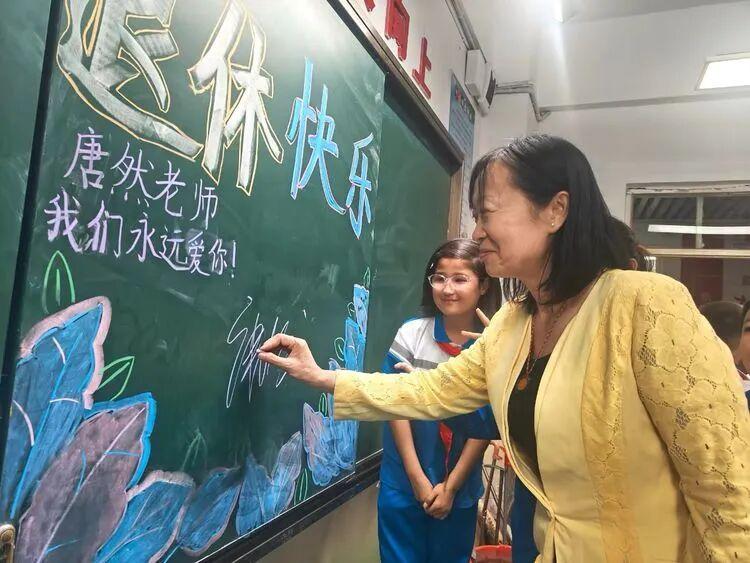 向上
退休快乐
唐然老师
我们永远爱你!